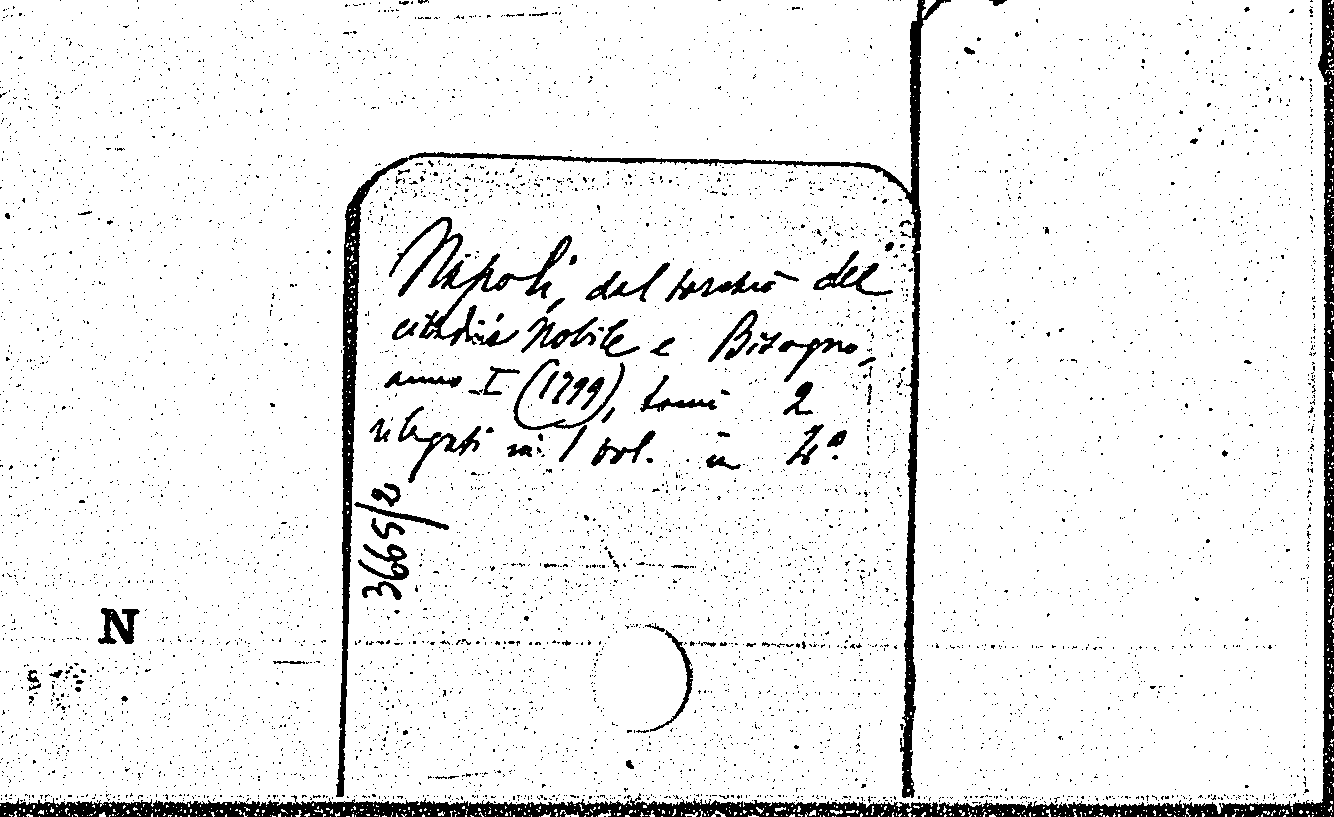 Napoli, dal torchio del
cittadin Nobile e Bisogno,
anno I (1799), tomi 2
rilegati in 1 vol. in 4º.
3665/2
N